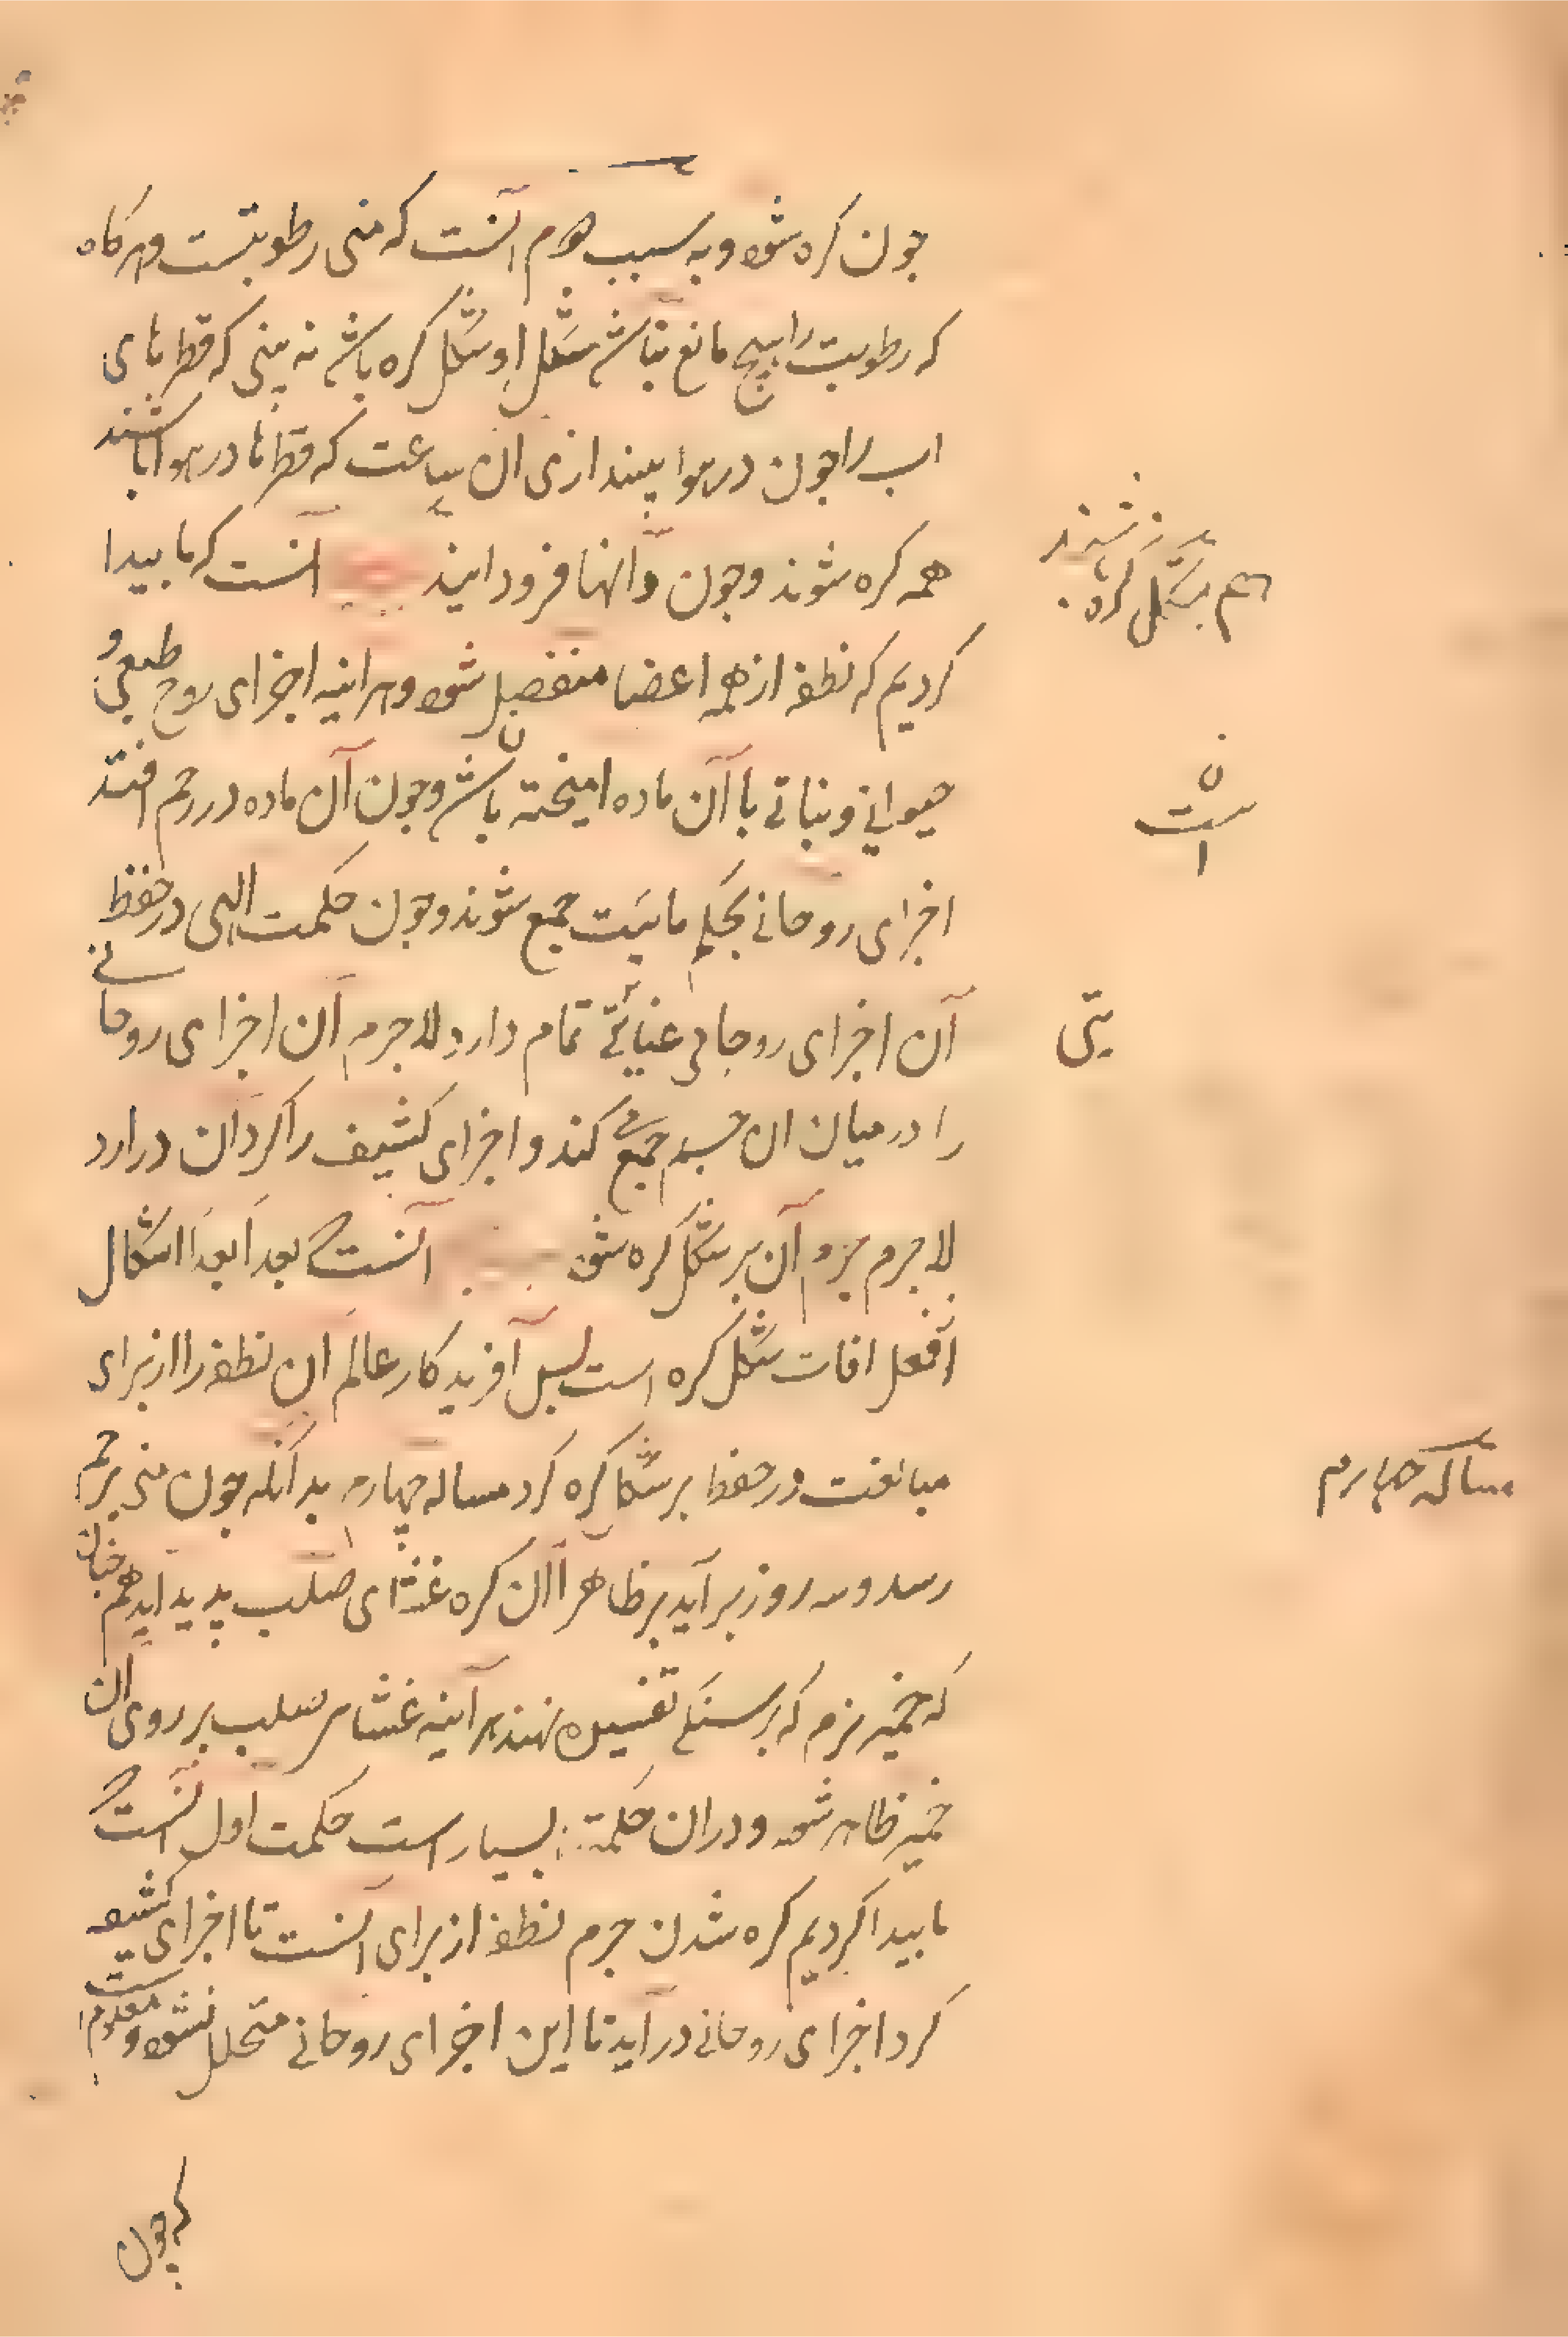 جون کره شود و به سبب دوم آنست که منی رطوبتیست و هرکاه
که رطوبت را هیچ مانع نباشد شکل او شکل کره باشد نه بینی که قطرهای
اب را جون در هوا بیندازی ان ساعت که قطرها در هوا باشند
همه کره شوند وجون دانها فرود ایند آنست که ما بیدا
هم بشکل کره باشند
کردیم که نطفه از همه اعضا منفصل شود و هراینه اجزای روح طبعی و
حیوانی و نباتی با آن ماده امیخته باشد وجون آن ماده در رحم افتد
اجزای روحانی بحکم جمع شوند وجون حکمت الهی در حفظ
آن اجزای روحانی عنایتی تمام دارد لاجرم آن اجزای روحانی
یتی
را درمیان ان جسم جمع کند و اجزای کثیف را کرد ان درارد
لاجرم جرم آن بر شکل کره شود آنست که بعد ابعد اشکال
افعل افات شکل کره است پس آفریدکار عالم ان نطفه را از برای
مبالغت در حفظ بر شکل کره کرد مساله چهارم بدانکه جون منی برحم
مساله چهارم
رسد و سه روز برآید بر ظاهر آن کره غشای صلب پدید اید همجنان
که خمیر نرم که بر سنکی تفسیده نهند هر آینه غشا صلب بر روی ان
خمیر ظاهر شود و دران حکمت بسیار است حکمت اول آنست که
ما بیدا کردیم کره شدن جرم نطفه از برای آنست تا اجزای کثیف
کرد اجزای روحانی درآید تا این اجزای روحانی متحلل نشود و معلومست
که چون